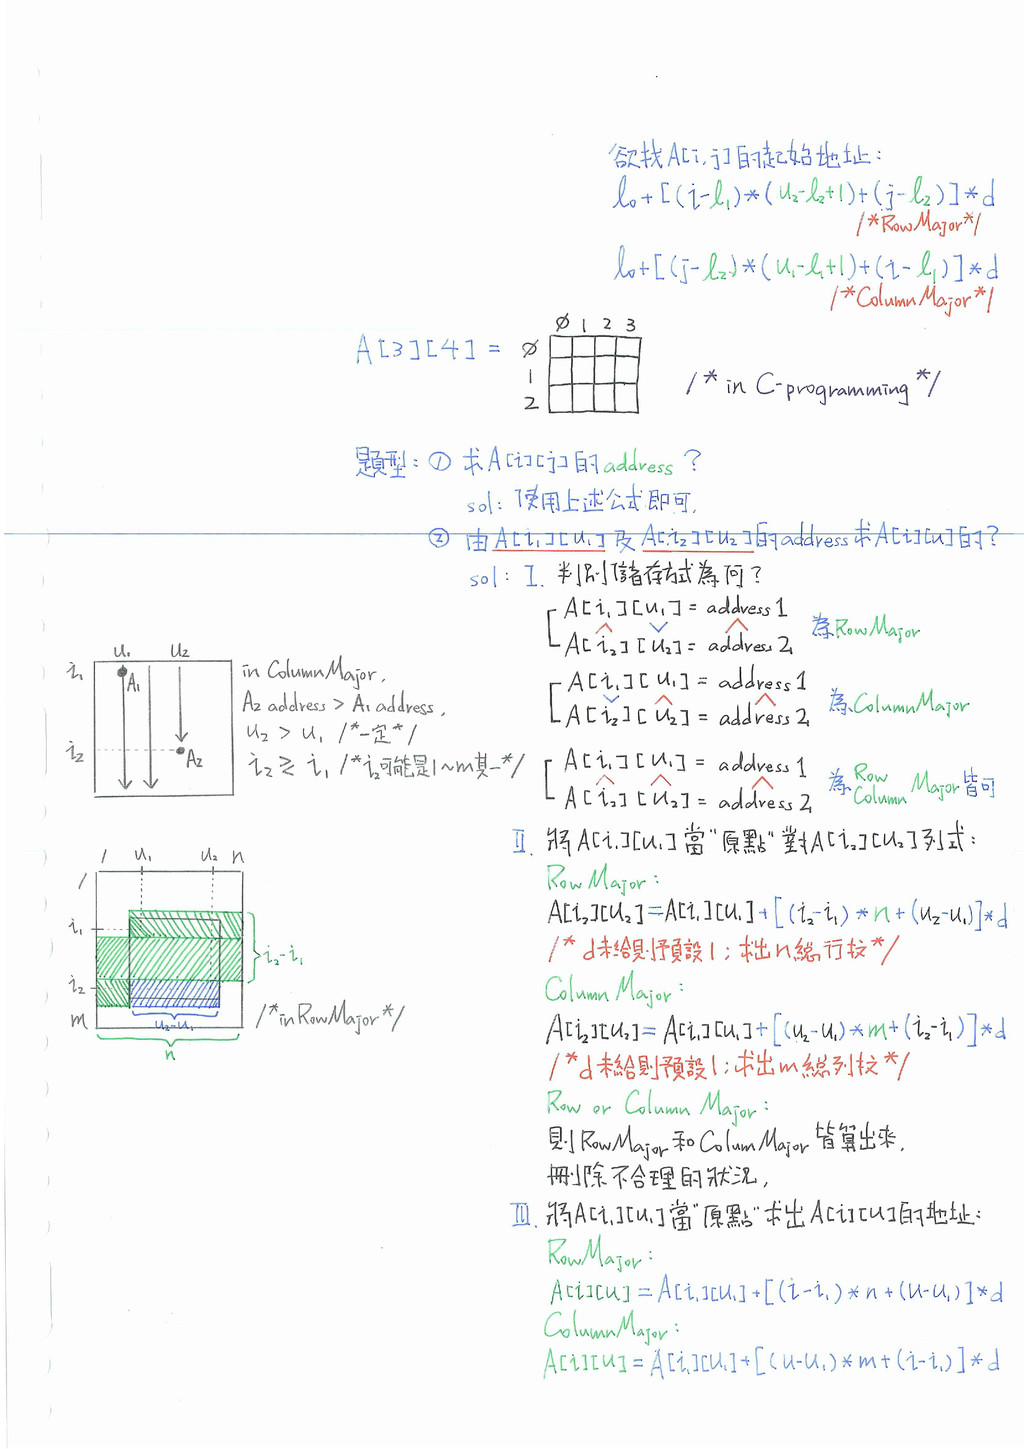 欲找A[i,j]的起始地址:
l₀+[(i-l₁)*(u₂-l₂+1)+(j-l₂)]*d
/*RowMajor*/
l₀+[(j-l₂)*(u₁-l₁+1)+(i-l₁)]*d
/*ColumnMajor*/
A[3][4] =
∅ 1 2 3
∅
1
2
/* in C-programming */
題型: ① 求A[i][j]的address ?
sol: 使用上述公式即可,
② 由A[i₁][u₁]及A[i₂][u₂]的address求A[i][u]的?
sol: I. 判別儲存方式為何?
A[i₁][u₁] = address1
A[i₂][u₂] = address2
為RowMajor
A[i₁][u₁] = address1
A[i₂][u₂] = address2
為ColumnMajor
A[i₁][u₁] = address1
A[i₂][u₂] = address2
為Row Column Major皆可
u₁ u₂
i₁
A₁
i₂
A₂
in ColumnMajor,
A₂ address > A₁ address,
u₂ > u₁ /*一定*/
i₂ ≥ i₁ /*i₂可能是1~m其一*/
II. 將A[i₁][u₁]當"原點"對A[i₂][u₂]列式:
RowMajor:
A[i₂][u₂]=A[i₁][u₁]+[(i₂-i₁)*n+(u₂-u₁)]*d
/* d未給則預設1; 求出n總行校*/
Column Major:
A[i₂][u₂]= A[i₁][u₁]+[(u₂-u₁)*m+(i₂-i₁)]*d
/*d未給則預設1; 求出m總列校*/
Row or Column Major:
則RowMajor和ColumMajor皆算出來,
刪除不合理的狀況,
1 u₁ u₂ n
1
i₁
i₂
m
i₂-i₁
u₂-u₁
n
/*inRowMajor*/
III. 將A[i₁][u₁]當"原點"求出A[i][u]的地址:
RowMajor:
A[i][u]=A[i₁][u₁]+[(i-i₁)*n+(u-u₁)]*d
ColumnMajor:
A[i][u]=A[i₁][u₁]+[(u-u₁)*m+(i-i₁)]*d